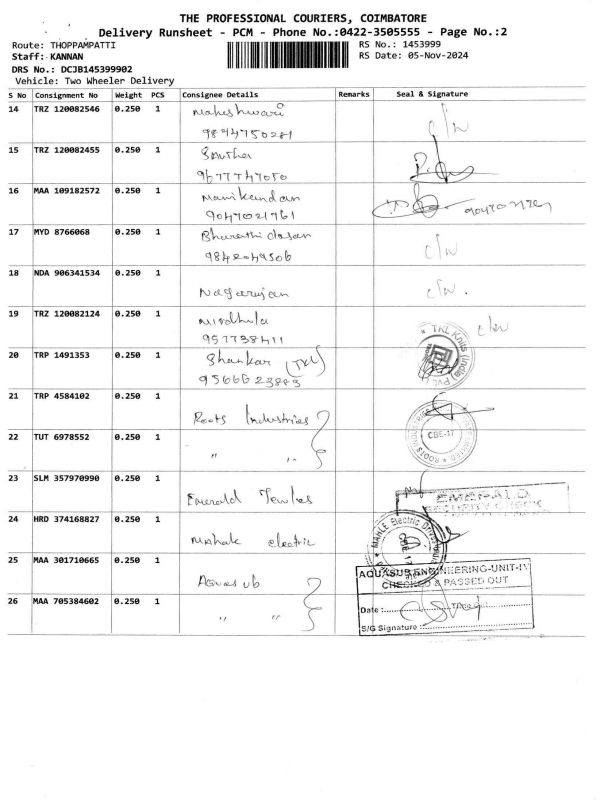 THE PROFESSIONAL COURIERS, COIMBATORE
Delivery Runsheet - PCM - Phone No.:0422-3505555 - Page No.:2
Route: THOPPAMPATTI RS No.: 1453999
Staff: KANNAN RS Date: 05-Nov-2024
DRS No.: DCJB145399902
Vehicle: Two Wheeler Delivery
S No Consignment No Weight PCS Consignee Details Remarks Seal & Signature
14 TRZ 120082546 0.250 1 Maheshwari c/w
9894750281
15 TRZ 120082455 0.250 1
9677747050
16 MAA 109182572 0.250 1 Manikandan
9047021761
17 MYD 8766068 0.250 1 Bharathi dasan c/w
9842049506
18 NDA 906341534 0.250 1 Nagarajan c/w.
19 TRZ 120082124 0.250 1 Mirdhula c/w
957738411
TKL Knits (India) Pvt.
20 TRP 1491353 0.250 1 Shankar (TKL)
9566623883
21 TRP 4584102 0.250 1 Roots Industries
ROOTS INDUSTRIES
CBE-17
22 TUT 6978552 0.250 1 " "
23 SLM 357970990 0.250 1 Emerald
EMERALD
SECURITY CHECK
24 HRD 374168827 0.250 1 Mahale electric
MAHLE Electric Drives
CBE 17
25 MAA 301710665 0.250 1 Aquasub
AQUASUB ENGINEERING-UNIT-IV
CHECKED & PASSED OUT
26 MAA 705384602 0.250 1 " "
Date :
S/G Signature :